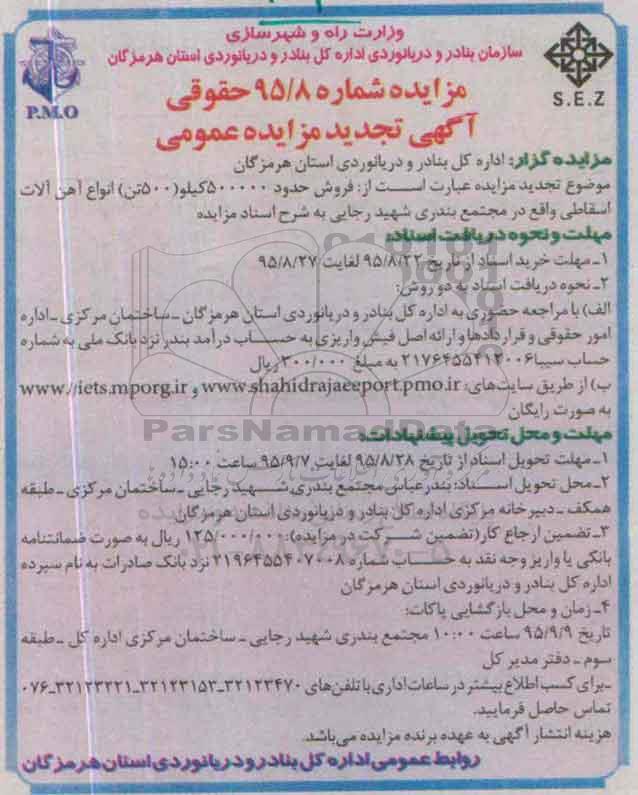 وزارت راه و شهرسازی
سازمان بنادر و دریانوردی اداره کل بنادر و دریانوردی استان هرمزگان
P.M.O
S.E.Z
مزایده شماره ۹۵/۸ حقوقی
آگهی تجدید مزایده عمومی
مزایده گزار: اداره کل بنادر و دریانوردی استان هرمزگان
موضوع تجدید مزایده عبارت است از: فروش حدود ۵۰۰۰۰۰کیلو(۵۰۰تن) انواع آهن آلات
اسقاطی واقع در مجتمع بندری شهید رجایی به شرح اسناد مزایده
مهلت و نحوه دریافت اسناد:
۱ـ مهلت خرید اسناد از تاریخ ۹۵/۸/۲۲ لغایت ۹۵/۸/۲۷
۲ـ نحوه دریافت اسناد به دو روش:
الف) با مراجعه حضوری به اداره کل بنادر و دریانوردی استان هرمزگان ـ ساختمان مرکزی ـ اداره
امور حقوقی و قراردادها و ارائه اصل فیش واریزی به حساب درآمد بندر نزد بانک ملی به شماره
حساب سیبا ۲۱۷۶۴۵۵۴۱۲۰۰۶ به مبلغ ۲۰۰/۰۰۰ ریال
ب) از طریق سایت‌های: www.shahidrajaeeport.pmo.ir و www.//iets.mporg.ir
به صورت رایگان
ParsNamadData
مهلت و محل تحویل پیشنهادات:
۱ـ مهلت تحویل اسناد از تاریخ ۹۵/۸/۲۸ لغایت ۹۵/۹/۷ ساعت ۱۵:۰۰
۲ـ محل تحویل اسناد: بندرعباس مجتمع بندری شهید رجایی ـ ساختمان مرکزی ـ طبقه
همکف ـ دبیرخانه مرکزی اداره کل بنادر و دریانوردی استان هرمزگان
۳ـ تضمین ارجاع کار(تضمین شرکت در مزایده): ۱۲۵/۰۰۰/۰۰۰ ریال به صورت ضمانتنامه
بانکی یا واریز وجه نقد به حساب شماره ۲۱۹۶۴۵۵۴۰۷۰۰۸ نزد بانک صادرات به نام سپرده
اداره کل بنادر و دریانوردی استان هرمزگان
۴ـ زمان و محل بازگشایی پاکات:
تاریخ ۹۵/۹/۹ ساعت ۱۰:۰۰ مجتمع بندری شهید رجایی ـ ساختمان مرکزی اداره کل ـ طبقه
سوم ـ دفتر مدیر کل
ـ برای کسب اطلاع بیشتر در ساعات اداری با تلفن‌های ۳۲۱۲۳۴۷۰ـ۳۲۱۲۳۱۵۳ـ۰۷۶ـ۳۲۱۲۳۲۲۱
تماس حاصل فرمایید.
هزینه انتشار آگهی به عهده برنده مزایده می‌باشد.
روابط عمومی اداره کل بنادر و دریانوردی استان هرمزگان